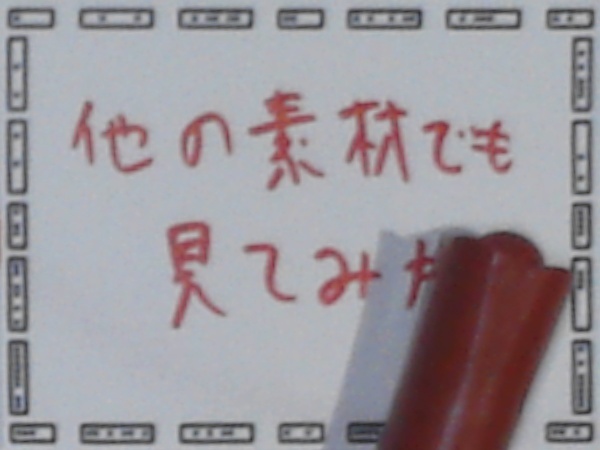 他の素材でも
見てみ